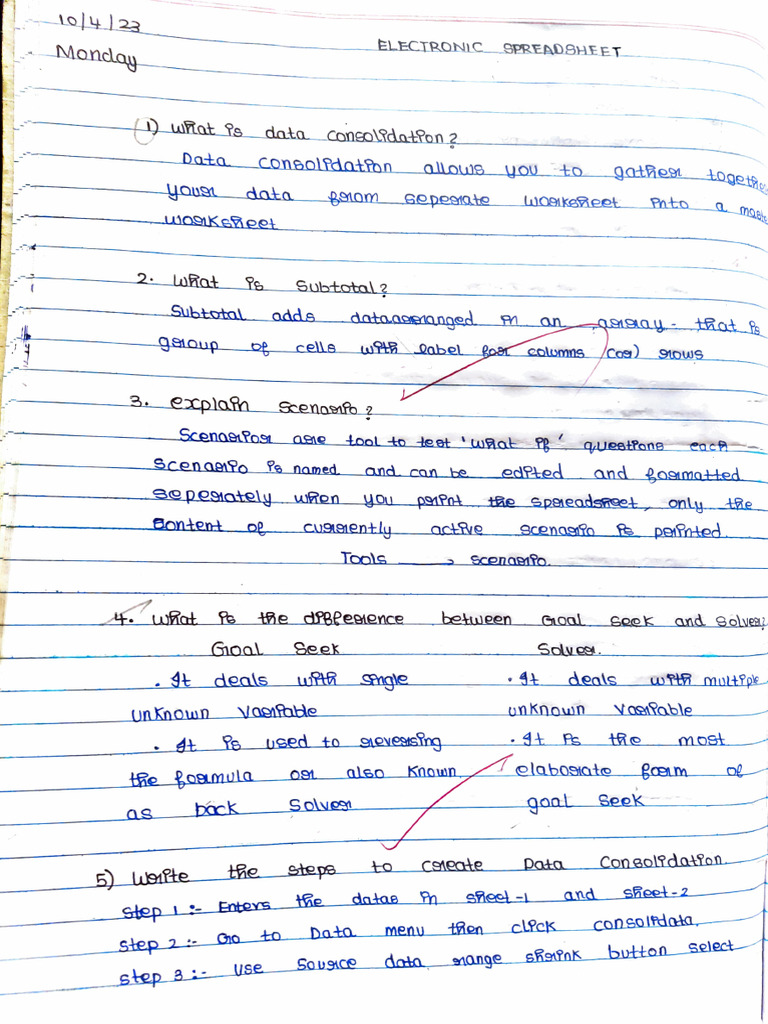 10/4/23
ELECTRONIC SPREADSHEET
Monday
1) What is data consolidation?
Data consolidation allows you to gather togethe
your data from seperate worksheet into a maste
worksheet
2. What is Subtotal?
Subtotal adds data arranged in an array - that is
group of cells with label for columns (or) rows
3. explain scenario?
Scenarios are tool to test 'what if' questions each
scenario is named and can be edited and formatted
seperately when you print the spreadsheet, only the
content of currently active scenario is printed.
Tools → scenario.
4. What is the difference between Goal Seek and Solver?
Goal Seek Solver.
. It deals with single . It deals with multiple
unknown Variable unknown Variable
. It is used to reversing . It is the most
the formula or also known elaborate form of
as back Solver goal seek
5) Write the steps to create Data Consolidation.
Step 1 :- Enters the datas in sheet-1 and sheet-2
Step 2 :- Go to Data menu then click considata.
Step 3 :- Use Source data range shrink button select